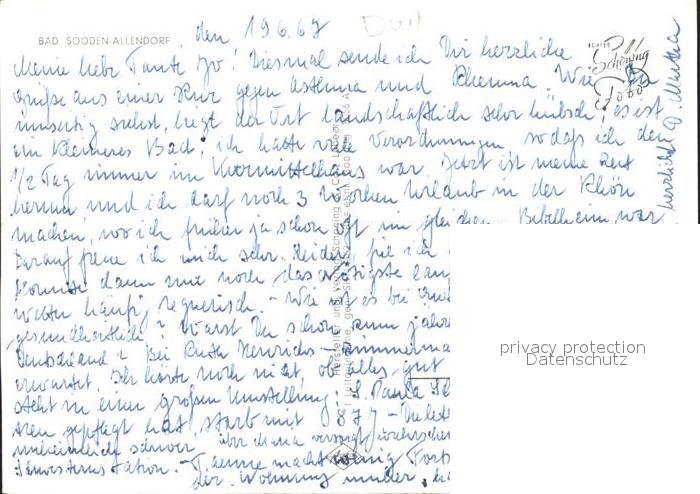 BAD SOODEN-ALLENDORF
den 19.6.67
Meine liebe Tante Jo! Diesmal sende ich Dir herzliche
Grüße aus einer Kur gegen Asthma und Rheuma. Wie Du
umseitig siehst, liegt der Ort landschaftlich sehr hübsch; es ist
ein kleineres Bad; ich hatte viele Verordnungen, sodaß ich den
1/2 Tag immer im Kurmittelhaus war. Jetzt ist meine Zeit
herum und ich darf noch 3 Wochen Urlaub in der Rhön
machen, wo ich früher ja schon oft im gleichen Bibelheim war
Darauf freue ich mich sehr. Leider, fiel ich
konnte dann nur noch das nötigste
Wetter häufig regnerisch - Wie ist es bei
gesundheitlich? Warst Du schon zum
Deutschland? Bei Ruth Henrichs-
erwartet. Ich hörte noch nicht, ob alles gut
steht in einer großen Umstellung
gepflegt hat, starb mit 77 - Die
unheimlich schwer, aber
der Wohnung
herzlichst D. Martha
ECHTES
Schöning
Foto
privacy protection
Datenschutz